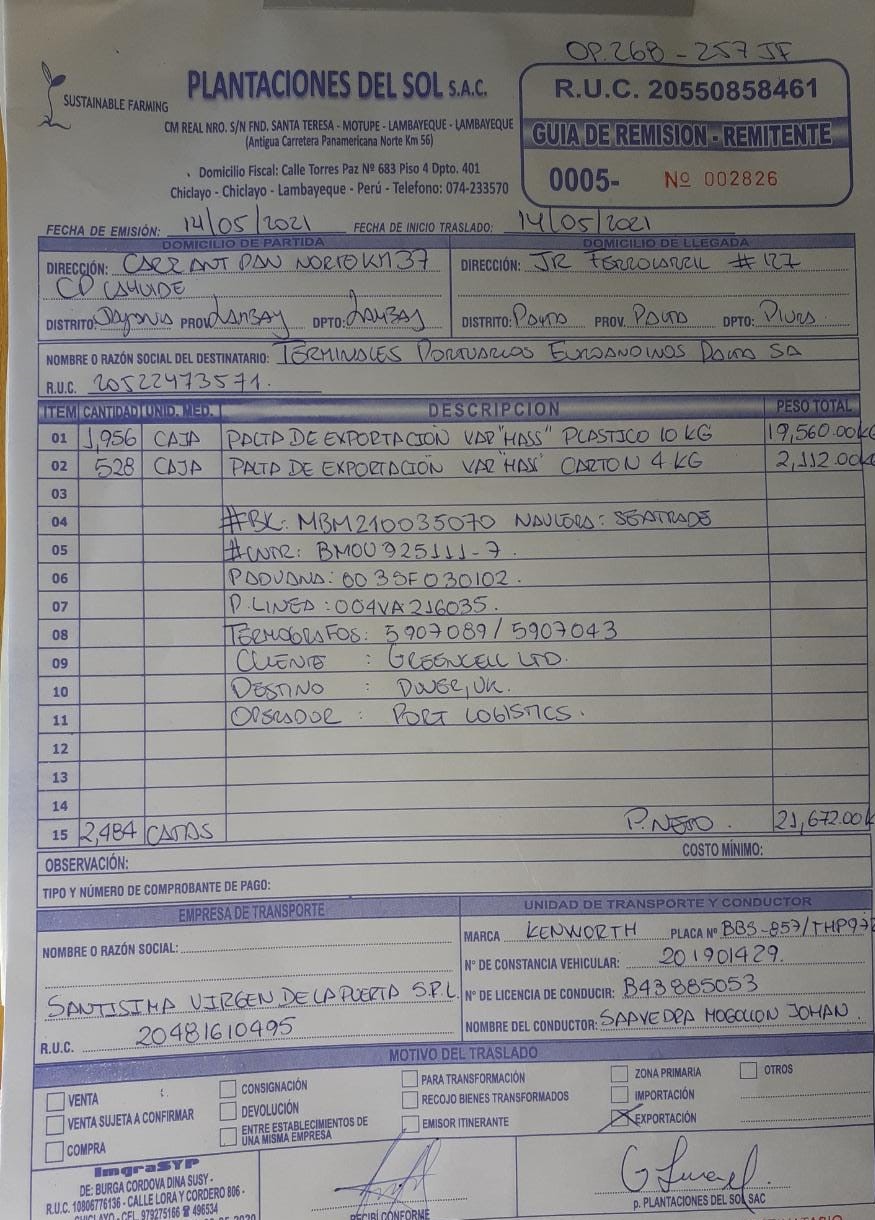 OP.268 - 257 JF
SUSTAINABLE FARMING
PLANTACIONES DEL SOL S.A.C.
CM REAL NRO. S/N FND. SANTA TERESA - MOTUPE - LAMBAYEQUE - LAMBAYEQUE
(Antigua Carretera Panamericana Norte Km 56)
Domicilio Fiscal: Calle Torres Paz Nº 683 Piso 4 Dpto. 401
Chiclayo - Chiclayo - Lambayeque - Perú - Telefono: 074-233570
R.U.C. 20550858461
GUIA DE REMISION - REMITENTE
0005- Nº 002826
FECHA DE EMISIÓN: 14/05/2021 FECHA DE INICIO TRASLADO: 14/05/2021
DOMICILIO DE PARTIDA
DIRECCIÓN: CARR ANT PAN NORTE KM 37
CP CAHUIDE
DISTRITO: Jayanca PROV. LAMBAY DPTO: LAMBAY
DOMICILIO DE LLEGADA
DIRECCIÓN: JR FERROCARRIL # 127
DISTRITO: PAITA PROV. PAITA DPTO: PIURA
NOMBRE O RAZÓN SOCIAL DEL DESTINATARIO: TERMINALES PORTUARIOS EUROANDINOS PAITA SA
R.U.C. 20522473571.
ITEM CANTIDAD UNID. MED. DESCRIPCION PESO TOTAL
01 1,956 CAJA PALTA DE EXPORTACIÓN VAR "HASS" PLASTICO 10 KG 19,560.00k
02 528 CAJA PALTA DE EXPORTACIÓN VAR "HASS" CARTON 4 KG 2,112.00k
03
04 #BK: MBM210035070 NAVIERA: SEATRADE
05 #CNTR: BMOU 925111-7.
06 P.ADUANA: 003SF030102.
07 P. LINEA: 004VA216035.
08 TERMOGRAFOS: 5907089/5907043
09 CLIENTE : GREENCELL LTD.
10 DESTINO : DOVER, UK.
11 OPERADOR : PORT LOGISTICS.
12
13
14
15 2,484 CAJAS P. NETO. 21,672.00k
COSTO MÍNIMO:
OBSERVACIÓN:
TIPO Y NÚMERO DE COMPROBANTE DE PAGO:
EMPRESA DE TRANSPORTE
NOMBRE O RAZÓN SOCIAL:
SANTISIMA VIRGEN DE LA PUERTA S.R.L.
R.U.C. 20481610495
UNIDAD DE TRANSPORTE Y CONDUCTOR
MARCA KENWORTH PLACA Nº BBS-857/THP97
Nº DE CONSTANCIA VEHICULAR: 201901429.
Nº DE LICENCIA DE CONDUCIR: B43885053
NOMBRE DEL CONDUCTOR: SAAVEDRA MOGOLLON JOHAN.
MOTIVO DEL TRASLADO
VENTA
VENTA SUJETA A CONFIRMAR
COMPRA
CONSIGNACIÓN
DEVOLUCIÓN
ENTRE ESTABLECIMIENTOS DE
UNA MISMA EMPRESA
PARA TRANSFORMACIÓN
RECOJO BIENES TRANSFORMADOS
EMISOR ITINERANTE
ZONA PRIMARIA
IMPORTACIÓN
EXPORTACIÓN
OTROS
ImgraSYP
DE: BURGA CORDOVA DINA SUSY -
R.U.C. 10806776136 - CALLE LORA Y CORDERO 806 -
CHICLAYO - CEL. 979275166 ☎ 496534
RECIBÍ CONFORME
p. PLANTACIONES DEL SOL SAC